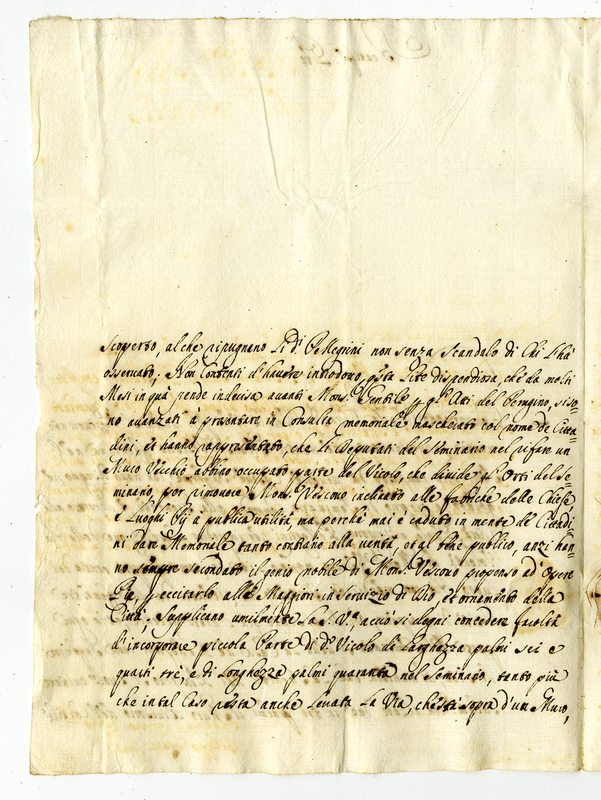 scoperto, al che ripugnano Li d.i Pellegrini non senza Scandalo di Chi l'hà
osservato; Non Contenti d'havere introdotto q̃sta Lite dispendiosa, che da molti
Mesi in quà pende indecisa avanti Mons.r Gentile p gl'Atti del Peregino, si so=
no avanzati à presentare in Consulta memoriale mascherato col nome de Citta=
dini, et hanno rappresentato, che li Deputati del Seminario nel rifare un
Muro Vecchio abbino occupato parte del Vicolo, che divide gl'Orti del Se=
minario, per rimovere Mons.r Vescovo inclinato alle fabriche delle Chiese,
e Luoghi Pij à publica utilità, ma perche mai è caduto in mente de Cittadi=
ni dare Memoriale tanto contrario alla verità, et al bene publico, anzi han=
no sempre secondato il genio nobile di Mons.r Vescovo propenso ad Opere
Pie, p eccitarlo alle Maggiori in Servizio di Dio, et ornamento della
Città; Supplicano umilmente La S. V.a acciò si degni concedere facoltà
d'incorporare piccola Parte di d.o Vicolo di Larghezza palmi sei e
quarti trè, e di Longhezza palmi quaranta nel Seminario, tanto più
che in tal Caso resta anche Levata La Via, che stà sopra d'un Muro,